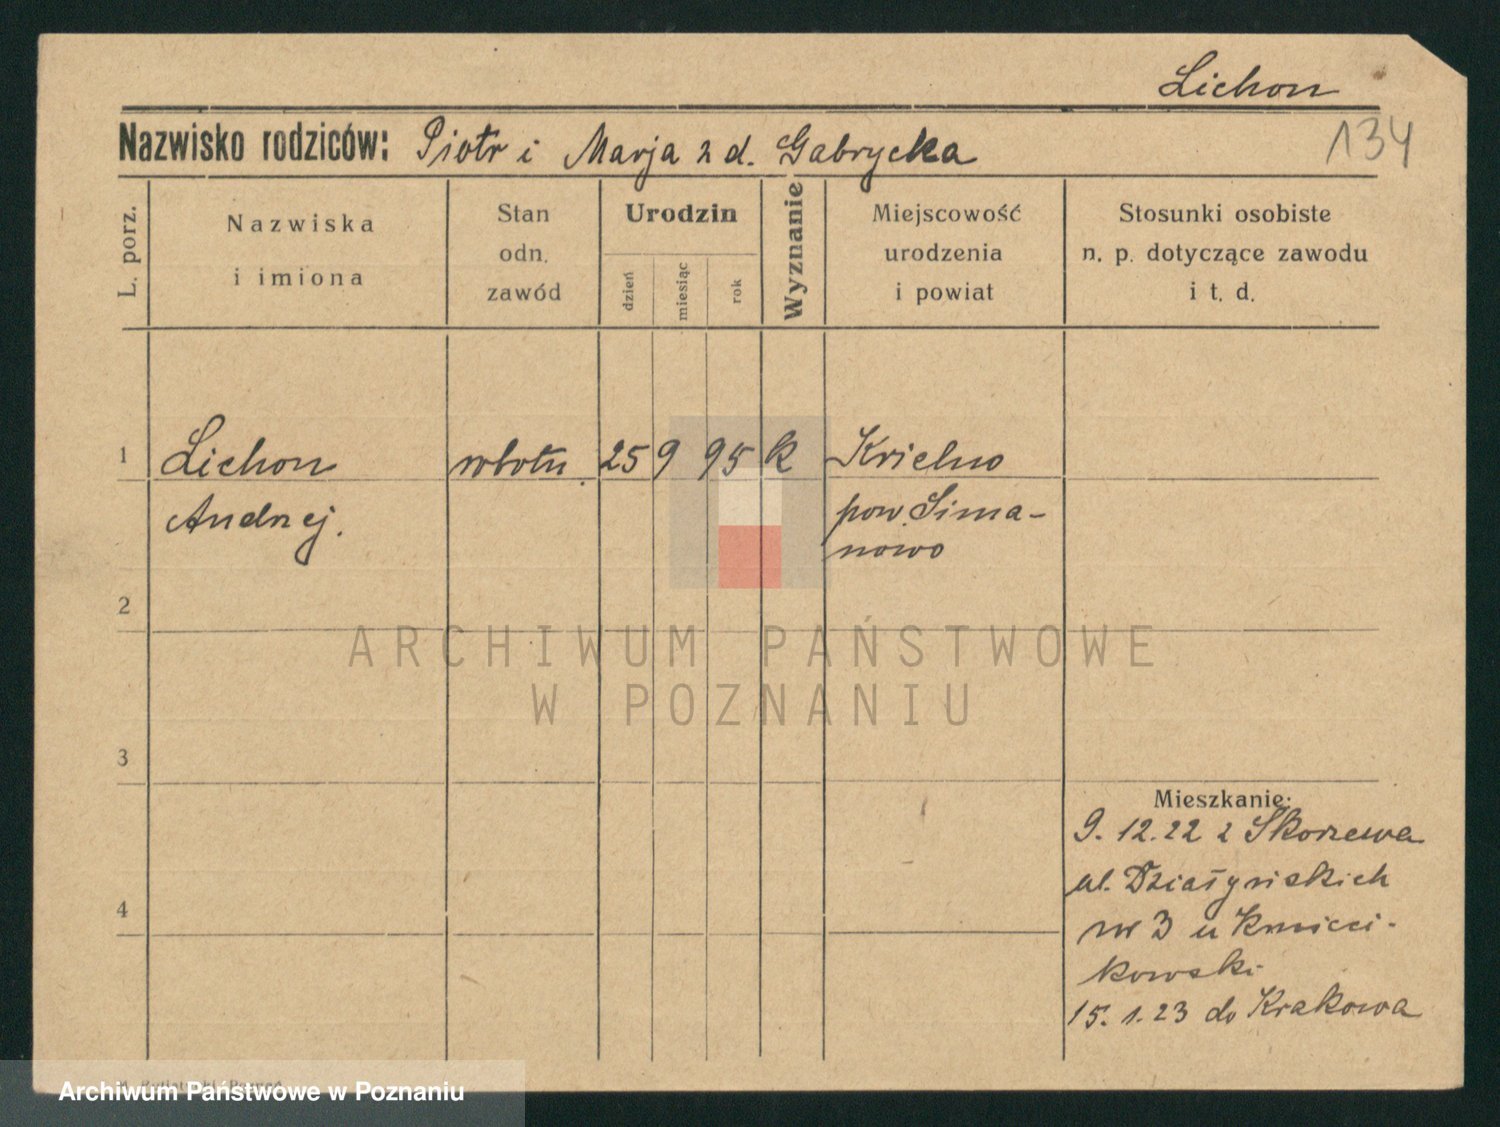 Lichon
134
Nazwisko rodziców: Piotr i Marja z d. Gabrycka
L. porz.
Nazwiska
i imiona
Stan
odn.
zawód
Urodzin
dzień
miesiąc
rok
Wyznanie
Miejscowość
urodzenia
i powiat
Stosunki osobiste
n. p. dotyczące zawodu
i t. d.
1
Lichon
robotn.
25
9
95
k
Krielno
Andrzej.
pow. Sima-
nowo
2
ARCHIWUM PAŃSTWOWE
W POZNANIU
3
Mieszkanie:
9. 12. 22 z Skorzewa
ul. Działyńskich
nr 3 u Kmieci-
kowski
15. 1. 23 do Krakowa
4
Archiwum Państwowe w Poznaniu